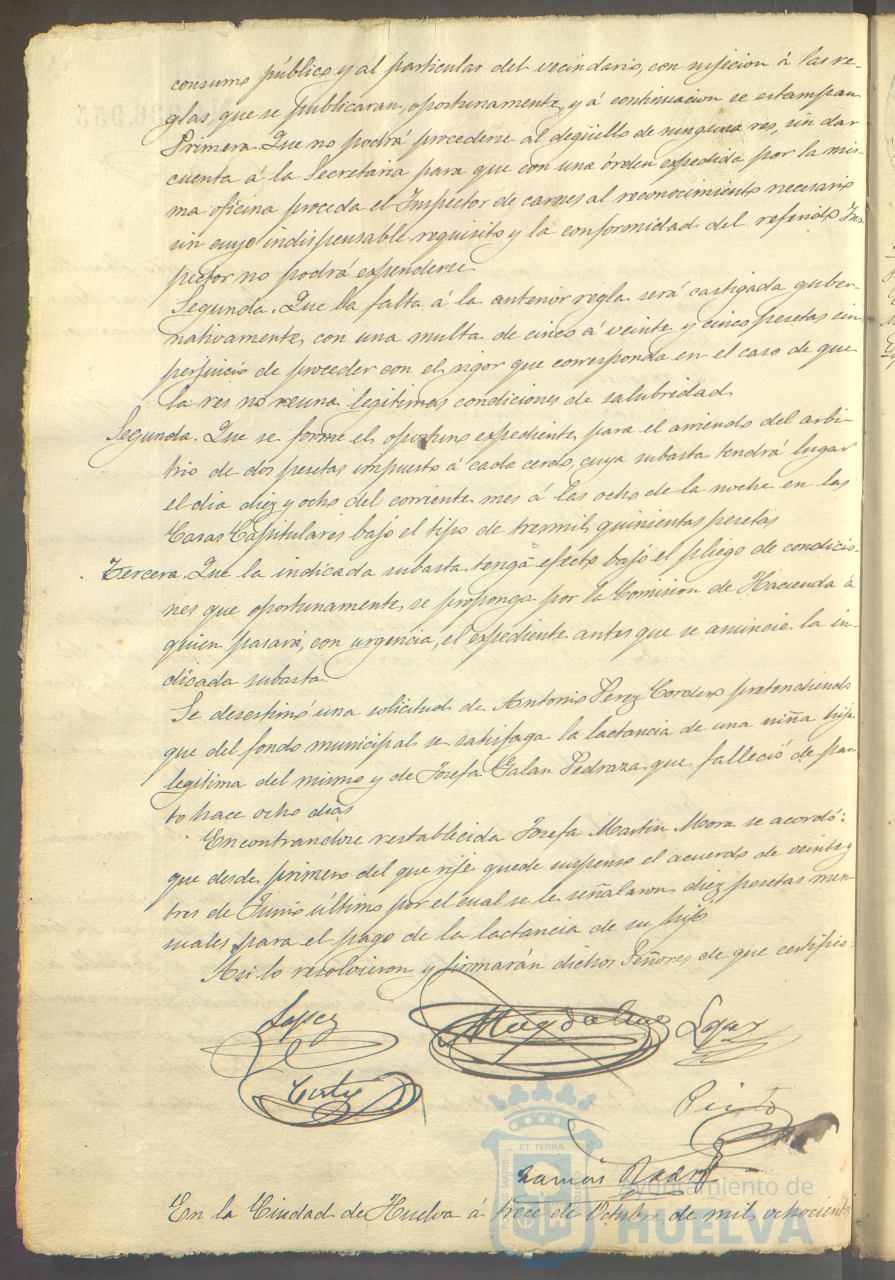 consumo público y al particular del vecindario, con sujecion á las re-
glas, que se publicaran, oportunamente, y á continuacion se estampan
Primera. Que no podrá procederse al degüello de ninguna res, sin dar
cuenta á la Secretaria para que con una órden expedida por la mis-
ma oficina proceda el Inspector de carnes al reconocimiento necesario
sin cuyo indispensable requisito y la conformidad del referido Ins
pector no podrá expenderse
Segunda. Que la falta á la anterior regla será castigada guber-
nativamente, con una multa de cinco á veinte y cinco pesetas sin
perjuicio de proceder con el rigor que corresponda en el caso de que
la res no reuna legitimas condiciones de salubridad
Segunda. Que se forme el oportuno expediente para el arriendo del arbi-
trio de dos pesetas impuesto á cada cerdo, cuya subasta tendrá lugar
el dia diez y ocho del corriente mes á las ocho de la noche en las
Casas Capitulares bajo el tipo de tres mil quinientas pesetas
Tercera. Que la indicada subasta tenga efecto bajo el pliego de condicio-
nes que oportunamente se proponga por la Comision de Hacienda á
quien pasará, con urgencia, el expediente antes que se anuncie la in-
dicada subasta.
Se desestimó una solicitud de Antonio Perez Cordero pretendiendo
que del fondo municipal se satisfaga la lactancia de una niña hija
legitima del mismo y de Josefa Galan Pedraza que falleció de par-
to hace ocho dias
Encontrandose restablecida Josefa Martin Mora se acordó:
que desde primero del que rije quede suspenso el acuerdo de veinte y
tres de Junio último por el cual se le señalaron diez pesetas men-
suales para el pago de la lactancia de su hijo
Asi lo resolvieron y firmarán dichos Señores de que certifico.
Lopez
Magdaleno
Lopez
Pinto
Ramon
En la Ciudad de Huelva á trece de Octubre de mil ochocientos
ET TERRÆ
PORTUS MARIS
CUSTODIA
Ayuntamiento de
HUELVA